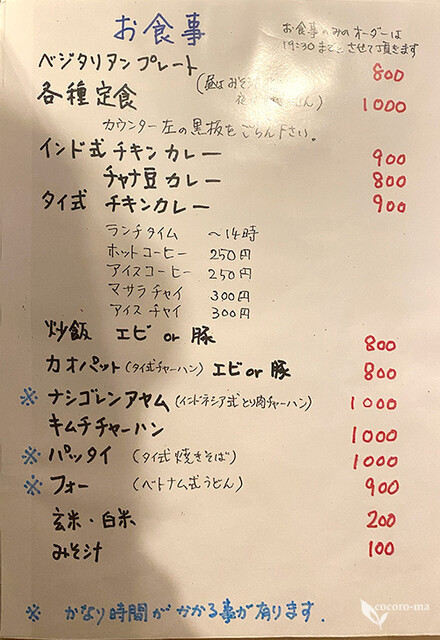 お食事
お食事のみのオーダーは
19:30までとさせて頂きます
ベジタリアンプレート 800
各種定食 1000
(昼はみそ汁
夜
カウンター左の黒板をごらん下さい。
インド式 チキンカレー 900
チャナ豆カレー 800
タイ式 チキンカレー 900
ランチタイム 〜14時
ホットコーヒー 250円
アイスコーヒー 250円
マサラチャイ 300円
アイスチャイ 300円
炒飯 エビ or 豚 800
カオパット(タイ式チャーハン) エビ or 豚 800
※ ナシゴレンアヤム(インドネシア式とり肉チャーハン) 1000
キムチチャーハン 1000
※ パッタイ (タイ式焼きそば) 1000
※ フォー (ベトナム式うどん) 900
玄米・白米 200
みそ汁 100
※ かなり時間がかかる事が有ります.
cocoro-ma